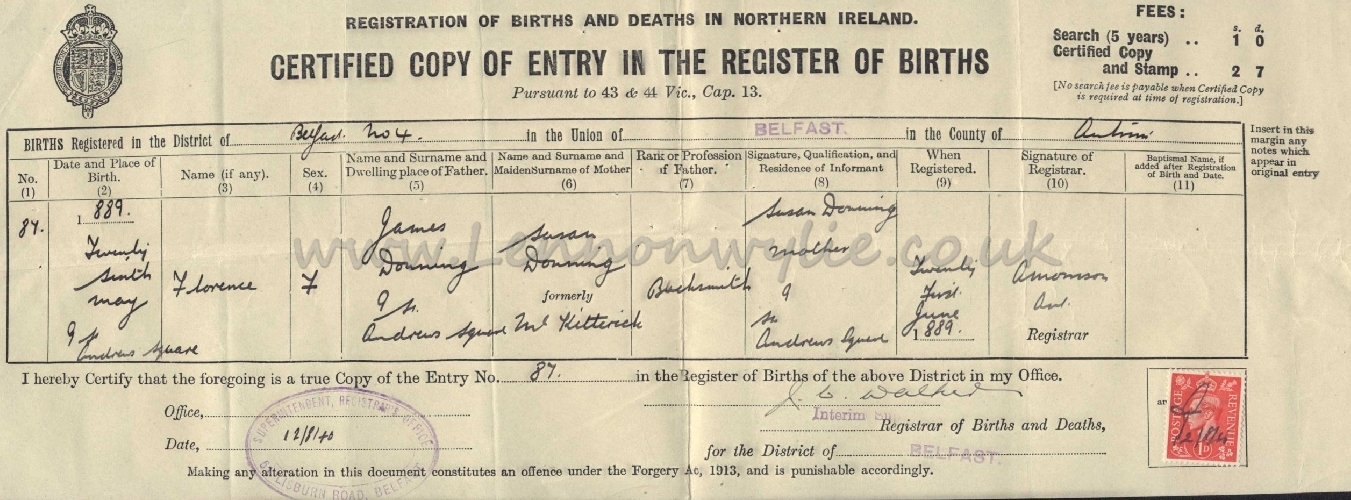 REGISTRATION OF BIRTHS AND DEATHS IN NORTHERN IRELAND.
CERTIFIED COPY OF ENTRY IN THE REGISTER OF BIRTHS
Pursuant to 43 & 44 Vic., Cap. 13.
FEES:
s. d.
Search (5 years) .. 1 0
Certified Copy
and Stamp .. 2 7
[No search fee is payable when Certified Copy
is required at time of registration.]
BIRTHS Registered in the District of Belfast No 4. in the Union of BELFAST. in the County of Antrim
Insert in this
margin any
notes which
appear in
original entry
No.
(1)
Date and Place of
Birth.
(2)
Name (if any).
(3)
Sex.
(4)
Name and Surname and
Dwelling place of Father.
(5)
Name and Surname and
Maiden Surname of Mother
(6)
Rank or Profession
of Father.
(7)
Signature, Qualification, and
Residence of Informant
(8)
When
Registered.
(9)
Signature of
Registrar.
(10)
Baptismal Name, if
added after Registration
of Birth and Date.
(11)
87.
1889.
Twenty
sixth
may
9 St
Andrews Square
Florence
F
James
Donning
9 St.
Andrews Square
Susan
Donning
formerly
McKitterick
Blacksmith
Susan Donning
mother
9
St.
Andrews Square
Twenty
First
June
1889.
Registrar
www.Lennonwylie.co.uk
I hereby Certify that the foregoing is a true Copy of the Entry No. 87. in the Register of Births of the above District in my Office.
Office,
Interim
Registrar of Births and Deaths,
Date, 12/8/40
for the District of BELFAST.
SUPERINTENDENT, REGISTRAR'S OFFICE
LISBURN ROAD, BELFAST
Making any alteration in this document constitutes an offence under the Forgery Ac, 1913, and is punishable accordingly.
POSTAGE
REVENUE
1D